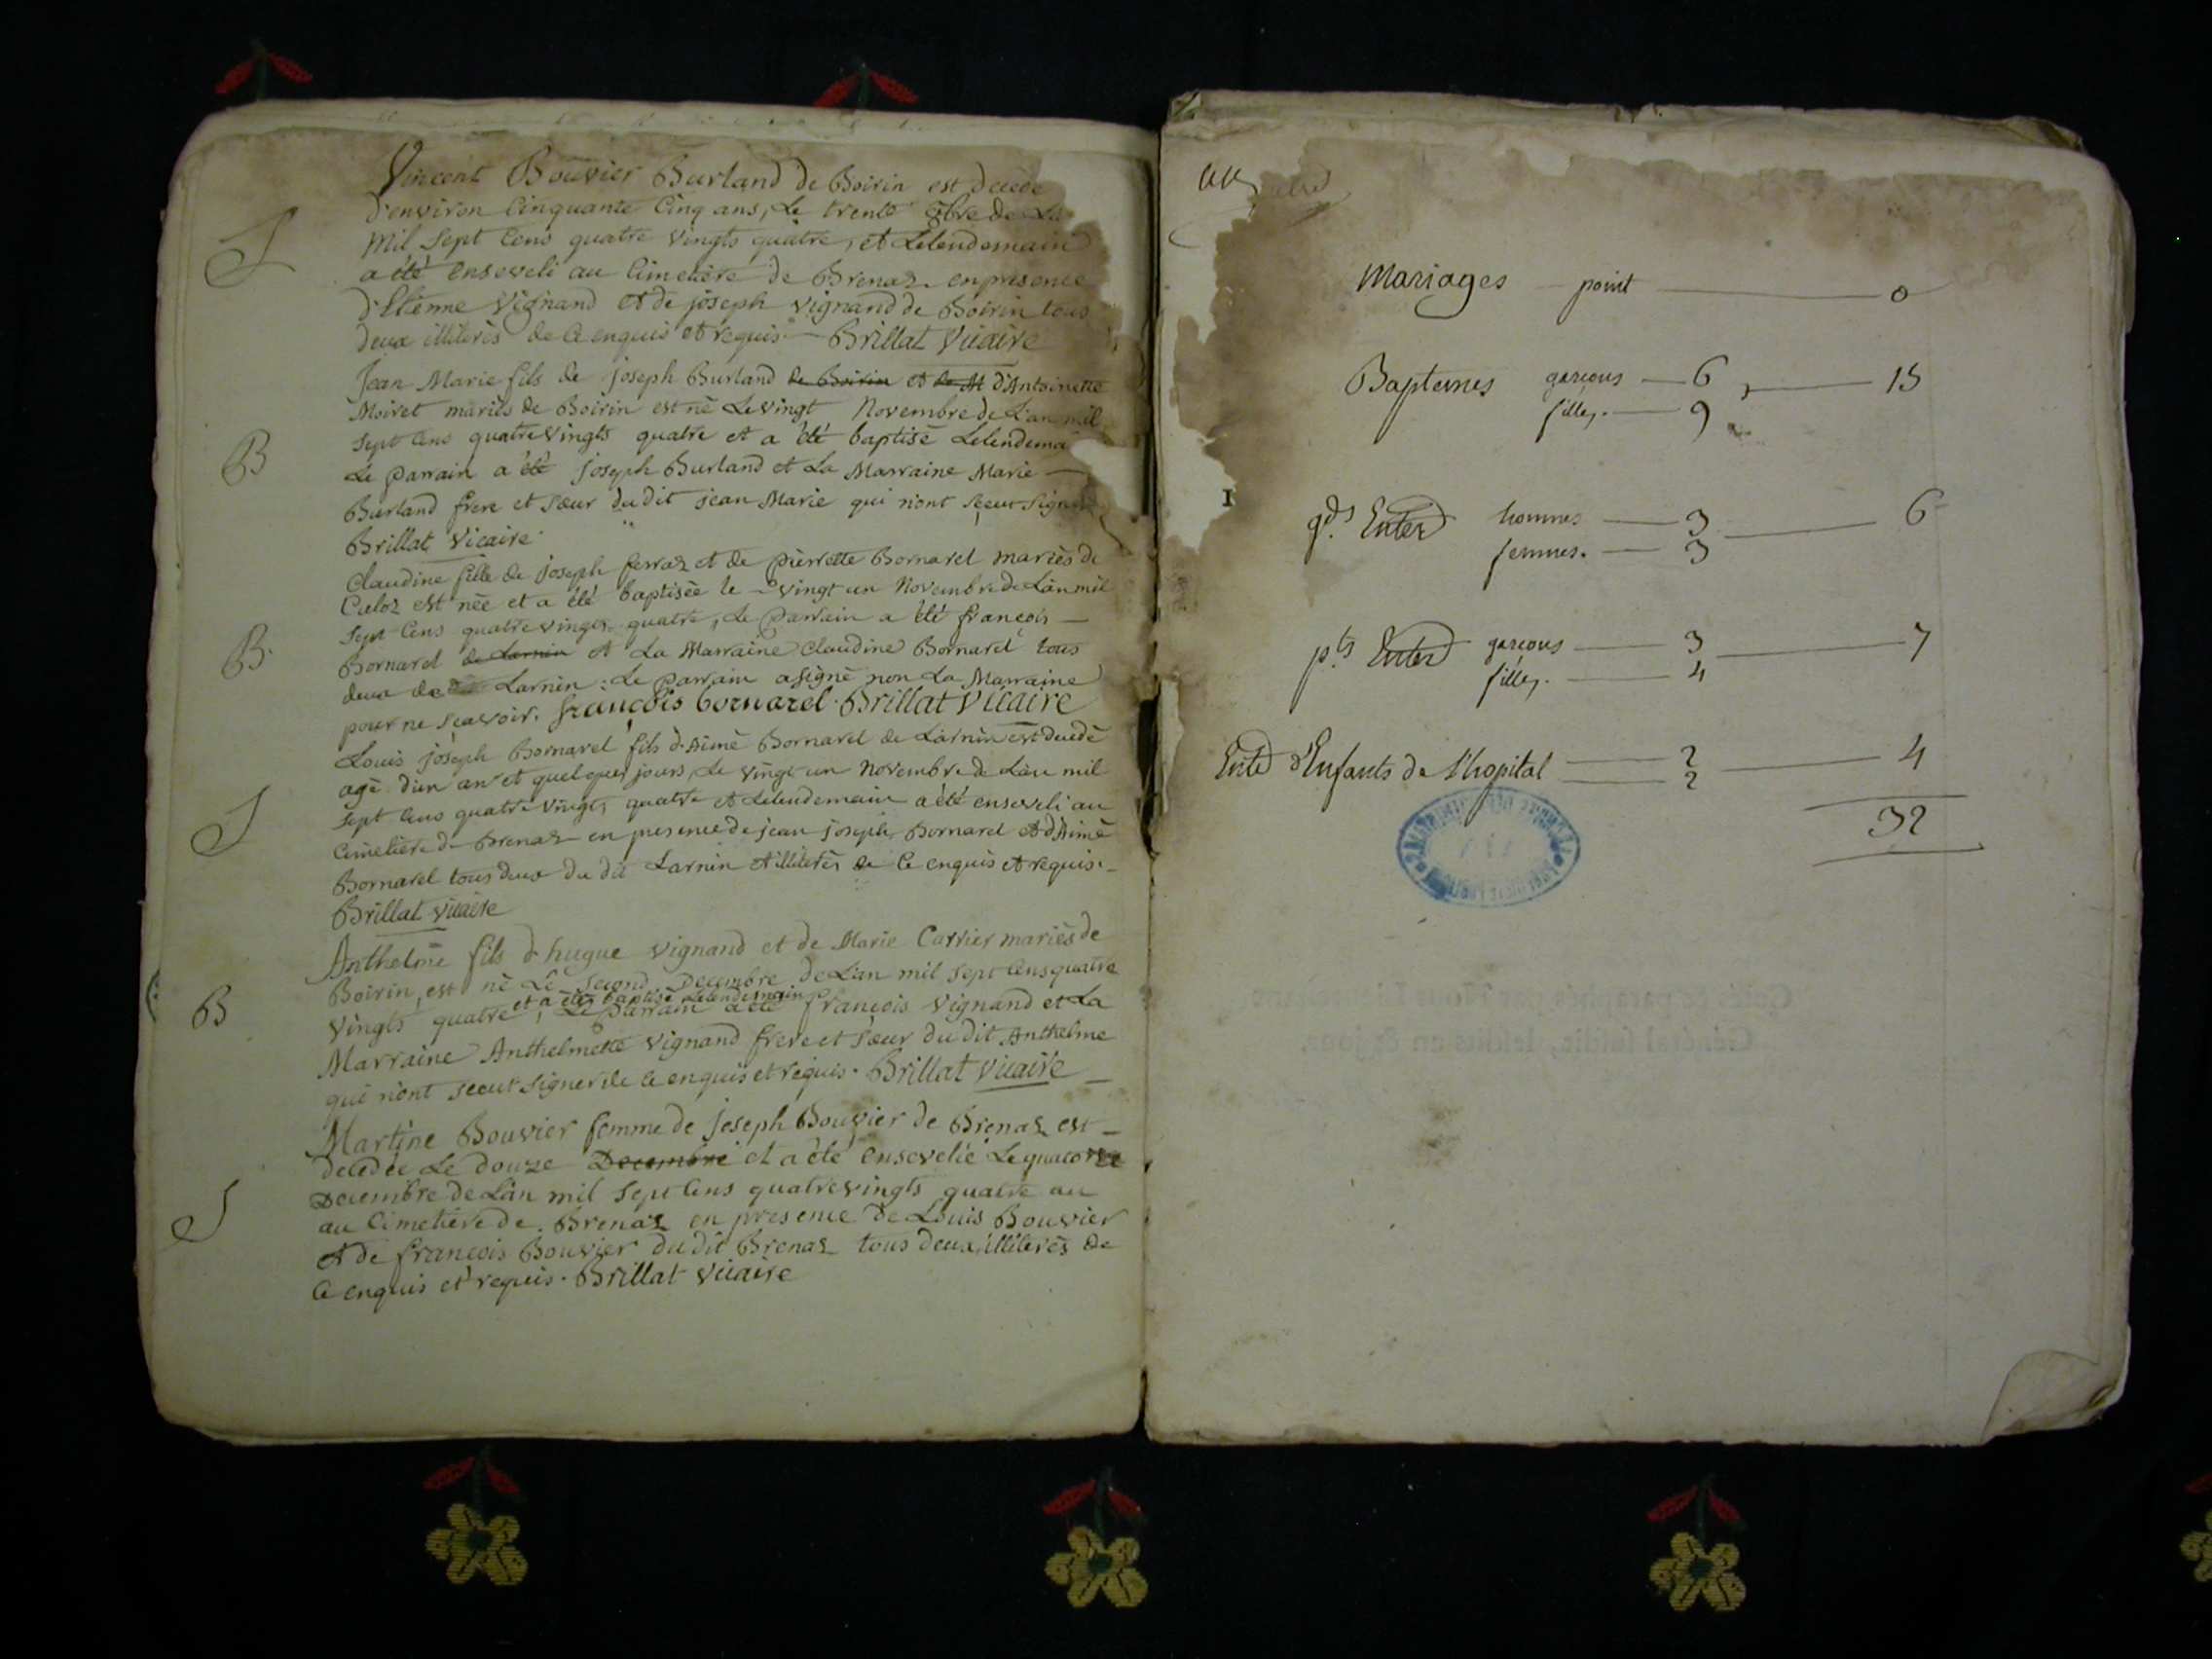 Vincent Bouvier Burland de Boirin est décédé
d'environ Cinquante Cinq ans, Le trente 8bre de La
Mil Sept Cens quatre vingts quatre, et Lelendemain
S
a été enseveli au Cimetière de Brenaz en présence
d'Etienne Vignand et de joseph vignand de Boirin tous
deux illiterés de Ce enquis et requis. Brillat Vicaire
Jean Marie fils de joseph Burland de Boirin et de M d'Antoinette
Moiret mariés de Boirin est né Le vingt Novembre de L'an mil
Sept Cens quatre Vingts quatre et a été baptisé Lelendema
B
Le Parrain a été joseph Burland et La Marraine Marie
Burland frere et Sœur du dit jean Marie qui n'ont sceut Signer
Brillat Vicaire
Claudine fille de joseph ferraz et de pierrette Bornarel mariés de
Culoz est née et a été baptisée le vingt un Novembre de L'an mil
Sept Cens quatre vingts quatre, Le Parrain a été françois
B.
Bornarel de Larnin et La Marraine Claudine Bornarel tous
deux de Larnin : Le Parrain a signé non La Marraine
pour ne Scavoir. françois bornarel. Brillat Vicaire
Louis joseph Bornarel fils d'Aimé Bornarel de Larnin est decedé
agé d'un an et quelques jours, Le vingt un Novembre de L'an mil
S
Sept Cens quatre Vingts quatre et Lelendemain a été enseveli au
Cimetière de Brenaz en presence de jean joseph Bornarel et d'Aimé
Bornarel tous deux du dit Larnin et illiterés de Ce enquis et requis.
Brillat vicaire
Anthelme fils d'hugue vignand et de Marie Carrier mariés de
Boirin, est né Le Second Decembre de L'an mil Sept Cens quatre
et a été baptisé Lelendemain
B
Vingts quatre, Le Parrain a été françois Vignand et La
Marraine Anthelmette vignand frere et Sœur du dit Anthelme
qui n'ont sceut Signer de Ce enquis et requis. Brillat Vicaire
Martine Bouvier femme de joseph Bouvier de Brenaz est
decedée Le douze Decembre et a été ensevelie Le quatorze
Decembre de L'an mil Sept Cens quatre vingts quatre au
S
au Cimetière de Brenaz en presence de Louis Bouvier
et de françois Bouvier du dit Brenaz tous deux illiterés de
Ce enquis et requis. Brillat Vicaire
Mariages point 0
Baptemes garcons 6 15
filles. 9
gds Enter hommes 3 6
femmes. 3
pts Enter garcons 3 7
filles. 4
Ente d'Enfants de l'hopital 2 4
2
32